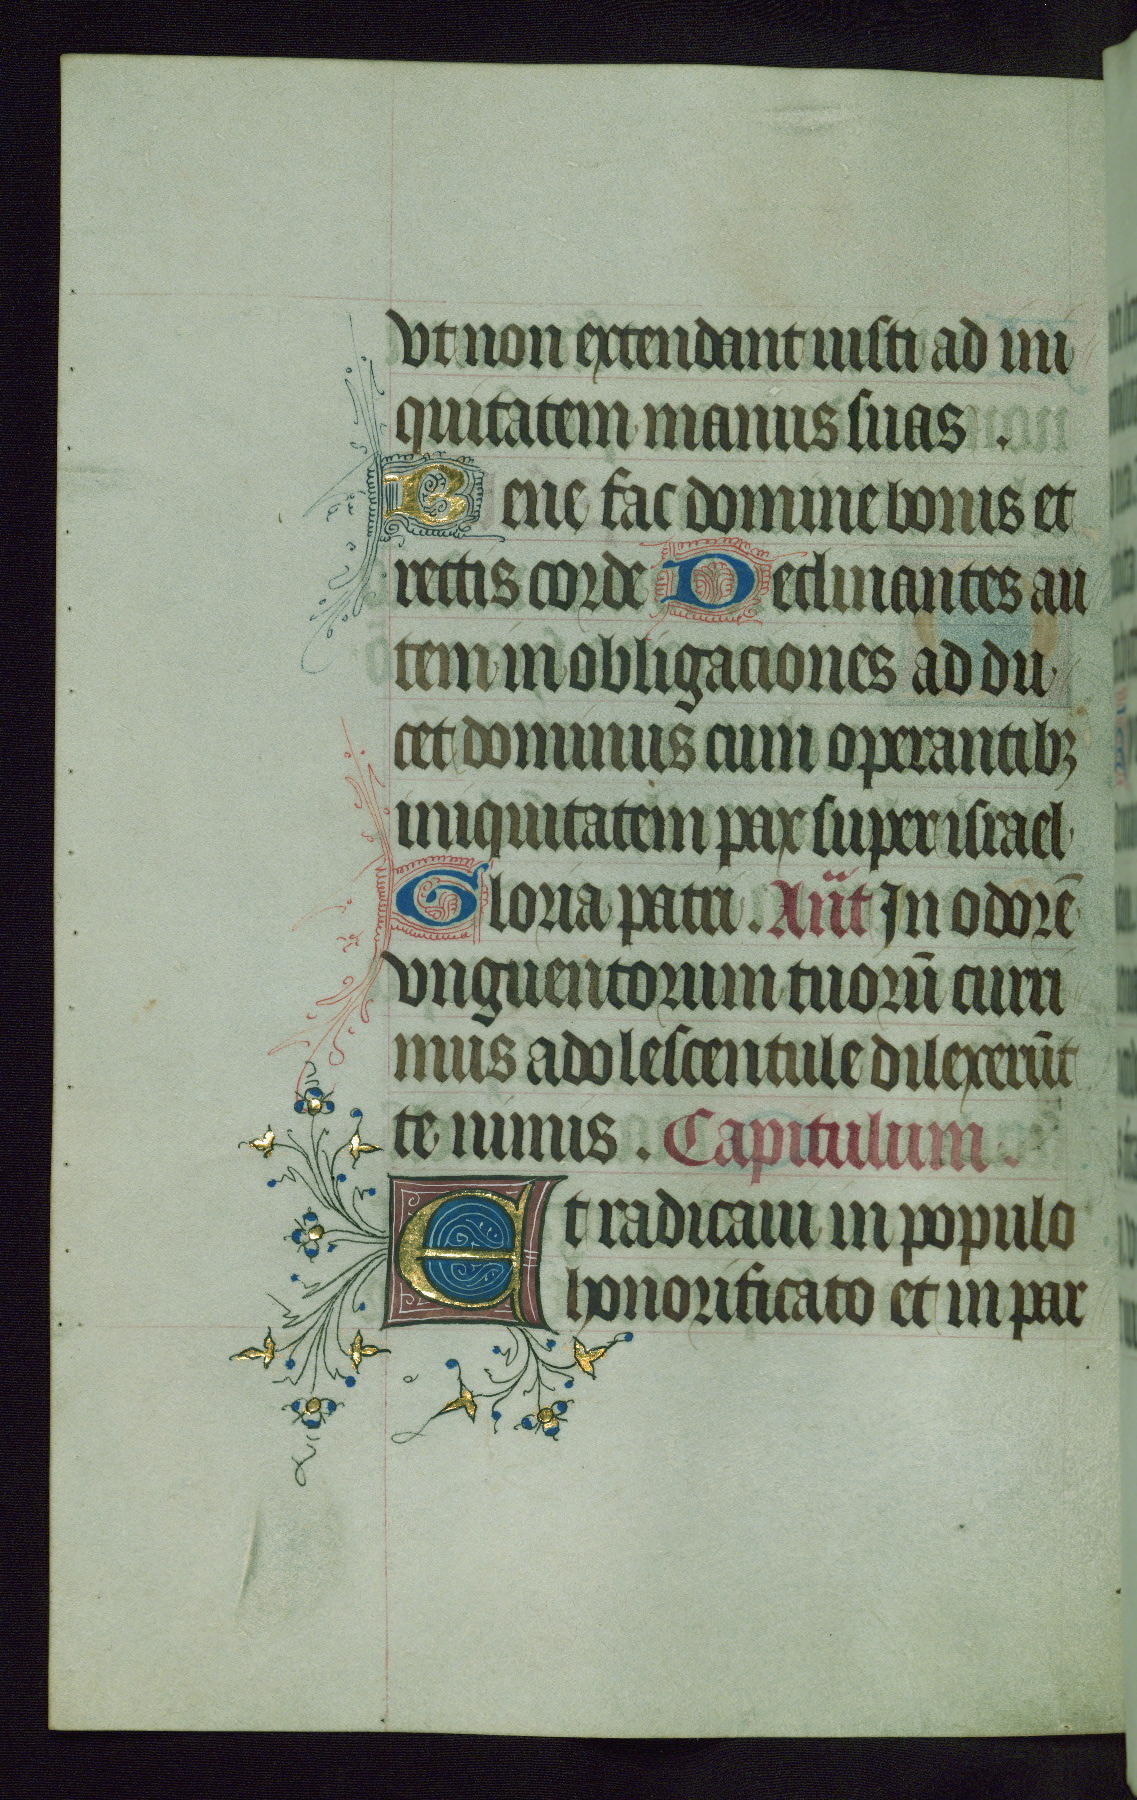 vt non extendant iusti ad ini
quitatem manus suas .
Bene fac domine bonis et
rectis corde Declinantes au
tem in obligaciones ad du
cet dominus cum operantibꝫ
iniquitatem pax super israel
Gloria patri . Añt In odorē
vnguentorum tuorū curri
mus adolescentule dilexerūt
te nimis . Capitulum .
Et radicaui in populo
honorificato et in par